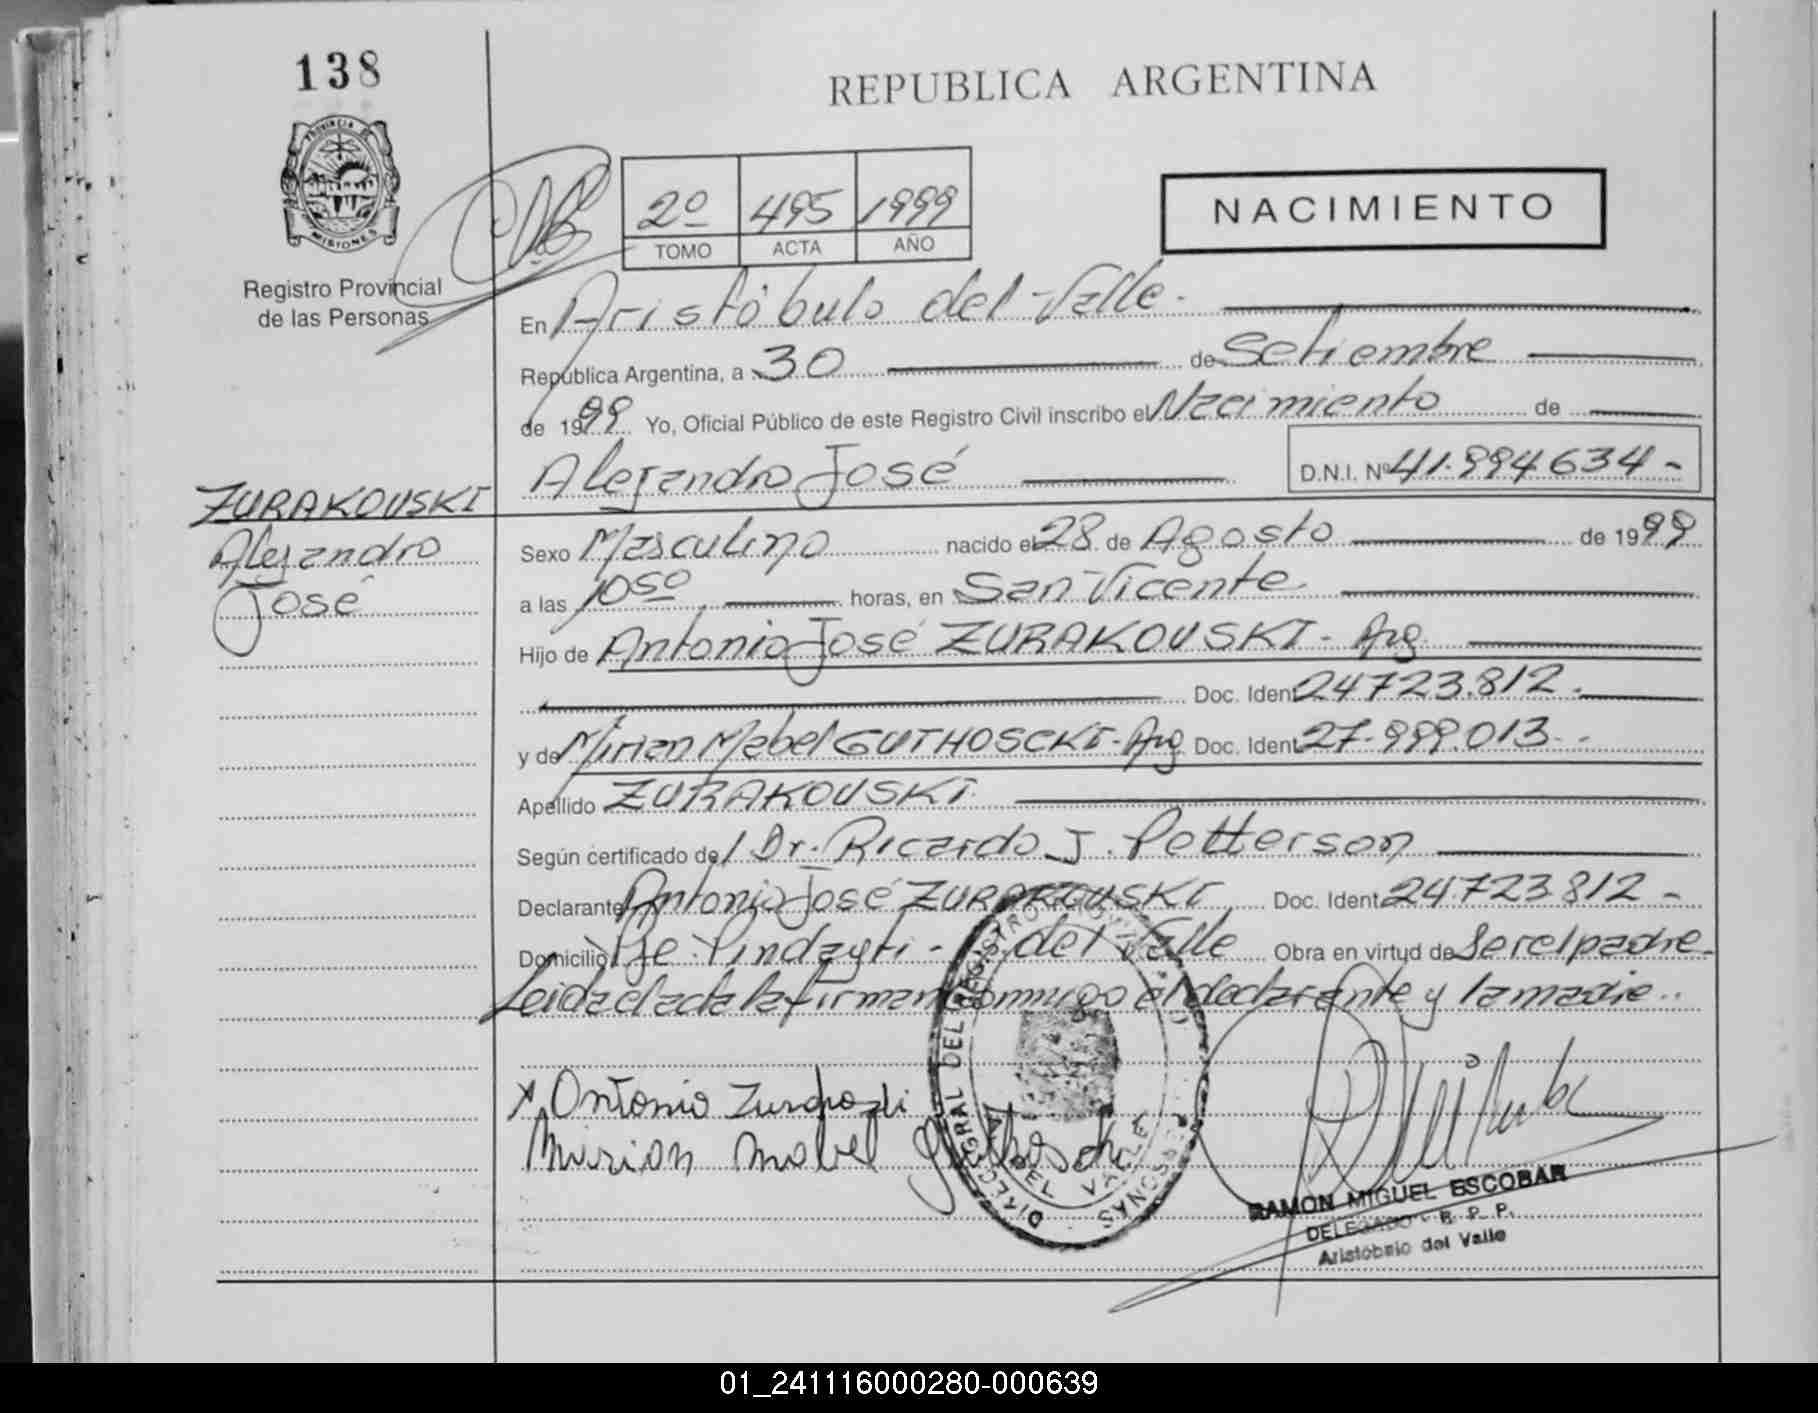 138
REPUBLICA ARGENTINA
PROVINCIA DE MISIONES
Registro Provincial
de las Personas
2º 495 1999
TOMO ACTA AÑO
NACIMIENTO
En Aristóbulo del Valle.
República Argentina, a 30 de Setiembre
de 1999 Yo, Oficial Público de este Registro Civil inscribo el Nacimiento de
Alejandro José D.N.I. Nº 41.994.634-
ZURAKOUSKI
Alejandro
José
Sexo Masculino nacido el 28 de Agosto de 1999
a las 1050 horas, en San Vicente
Hijo de Antonio José ZURAKOUSKI - Arg.
Doc. Ident 24723.812.
y de Mirian Mabel GUTHOSCKI - Arg Doc. Ident 27.999.013.
Apellido ZURAKOUSKI
Según certificado del Dr. Ricardo J. Petterson
Declarante Antonio José ZURAKOUSKI Doc. Ident 24.723.812 -
Domicilio Pje. Pindayti - del Valle Obra en virtud de Ser el padre-
Leida el acta la firman conmigo el declarante y la madre..
x Antonio
Mirian Mabel
DEL VALLE
RAMON MIGUEL ESCOBAR
DELEGADO - R. P. P.
Aristóbulo del Valle
01_241116000280-000639